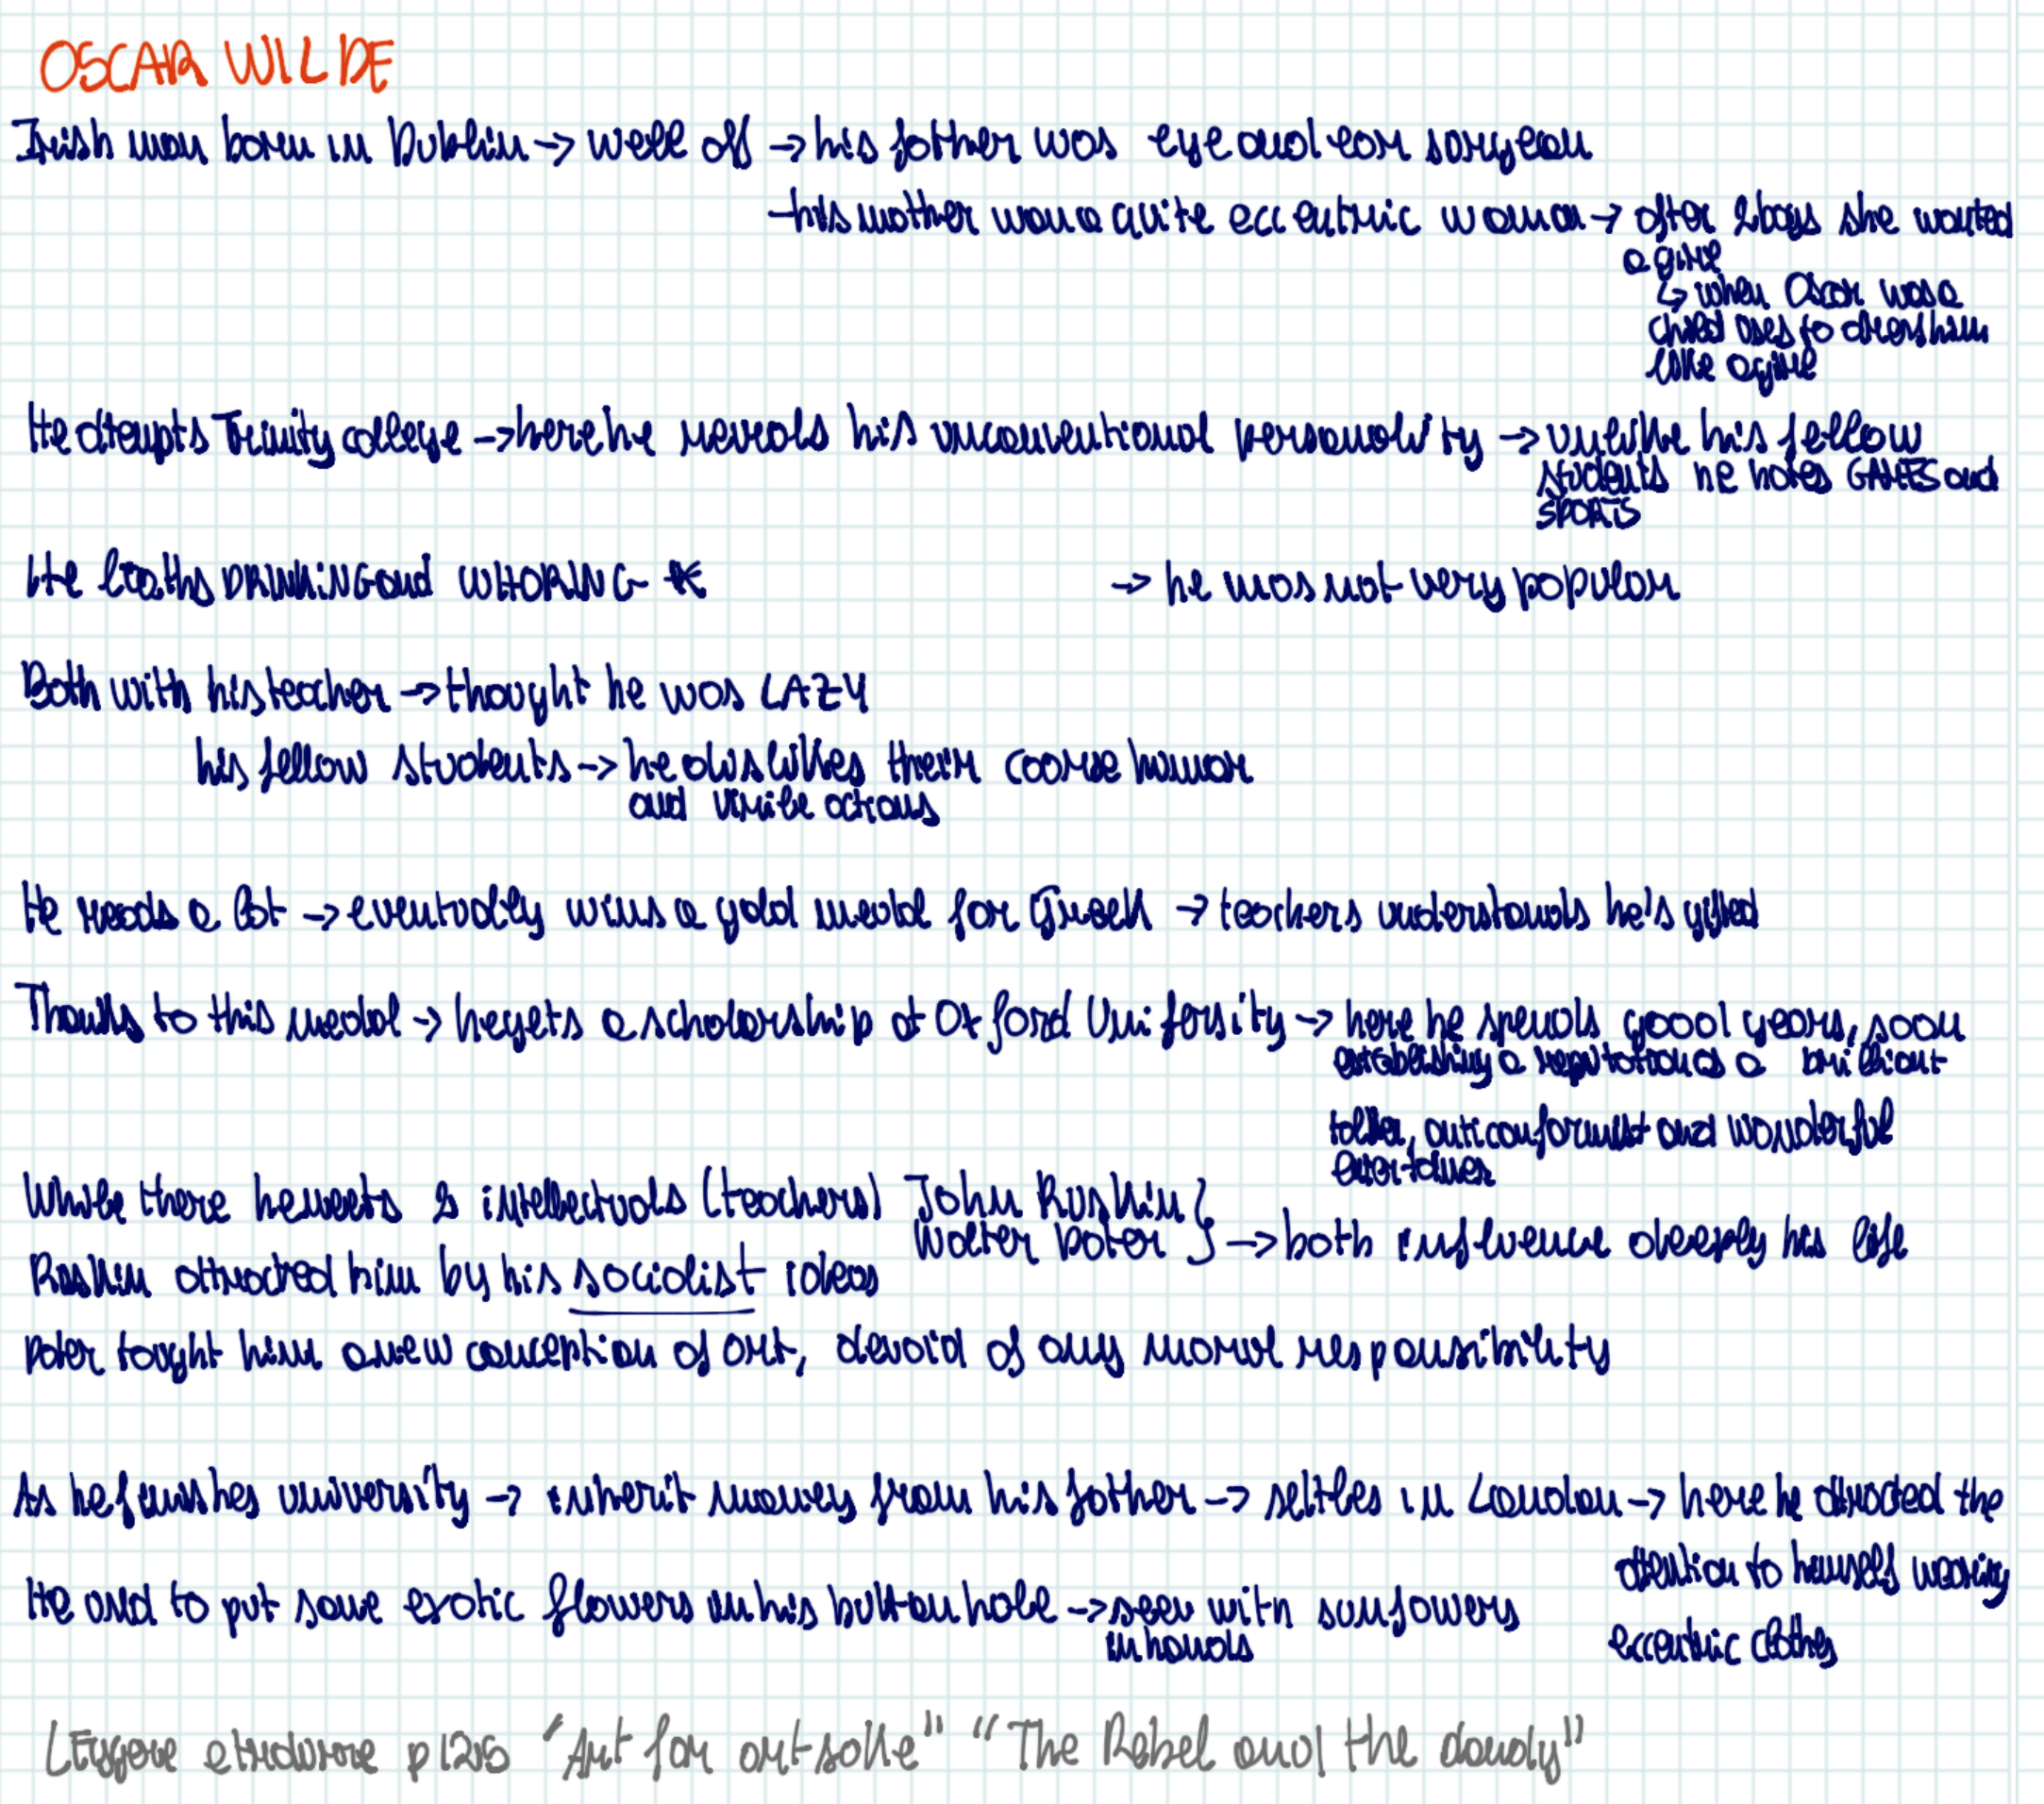 OSCAR WILDE
Irish man born in Dublin → well off → his father was eye and ear surgeon
→ his mother was a quite eccentric woman → after 2 boys she wanted
a girl
↳ when Oscar was a
child uses to dress him
like a girl
He attempts Trinity college → here he reveals his unconventional personality → unlike his fellow
students he hates GAMES and
SPORTS
He loaths DRINKING and WHORING *
→ he was not very popular
Both with his teacher → thought he was LAZY
his fellow students → he dislikes their coarse humor
and virile actions
He reads a lot → eventually wins a gold medal for Greek → teachers understands he's gifted
Thanks to this medal → he gets a scholarship at Oxford Unifersity → here he spends good years, soon
establishing a reputation as a brilliant
talker, anticonformist and wonderful
While there he meets 2 intellectuals (teachers) John Ruskin }
Walter Pater } → both influence deeply his life
Ruskin attracted him by his socialist ideas
Pater tought him a new conception of art, devoid of any moral responsibility
As he finishes university → inherit money from his father → seltles in London → here he attracted the
attention to himself wearing
eccentric clothes
He used to put some exotic flowers in his buttonhole → seen with sunfowers
in hands
LEggere e tradurre p 125 "Art for art sake" "The Rebel and the dandy"